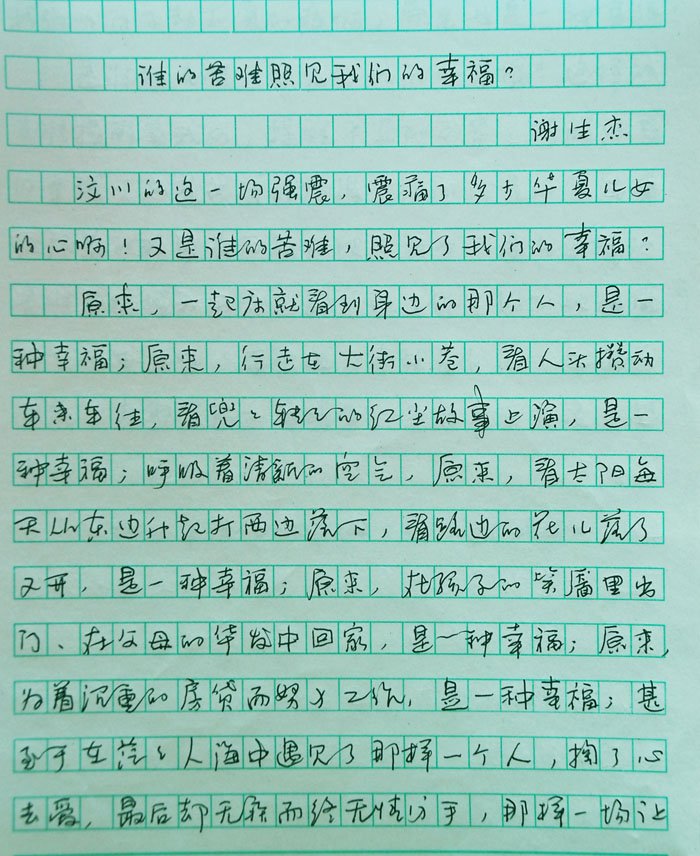 谁的苦难照见我们的幸福?
谢生杰
汶川的这一场强震,震痛了多少华夏儿女
的心啊!又是谁的苦难,照见了我们的幸福?
原来,一起床就看到身边的那个人,是一
种幸福;原来,行走在大街小巷,看人头攒动
车来车往,看兜兜转转的红尘故事上演,是一
种幸福;呼吸着清新的空气,原来,看太阳每
天从东边升起打西边落下,看路边的花儿落了
又开,是一种幸福;原来,在孩子的笑靥里出
门、在父母的华发中回家,是一种幸福;原来,
为着沉重的房贷而努力工作,是一种幸福;甚
至于在茫茫人海中遇见了那样一个人,掏了心
去爱,最后却无疾而终无情分手,那样一场让